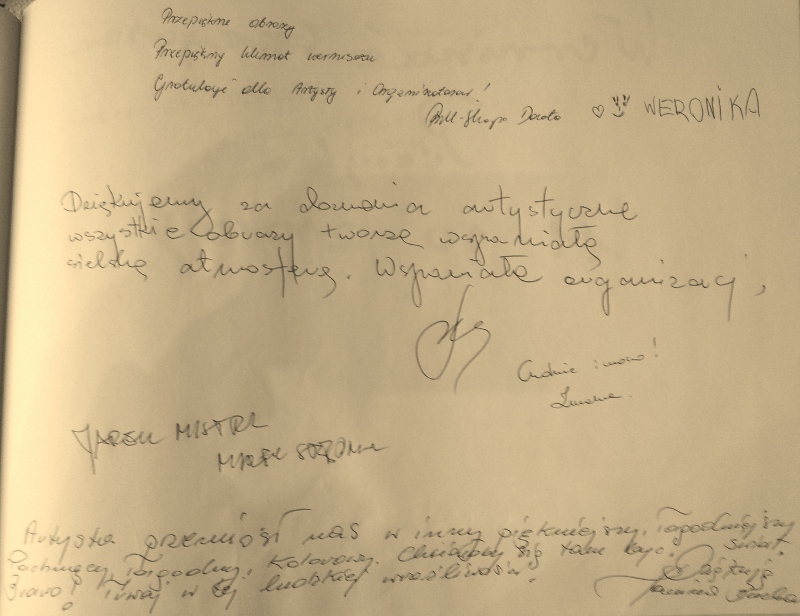 Przepiękne obrazy
Przepiękny klimat wernisażu
Gratulacje dla Artysty i Organizatorów!
Dorota
WERONIKA
Dziękujemy za doznania artystyczne
wszystkie obrazy tworzą wspaniałą
sielską atmosferę. Wspaniała organizacj,
Cudnie i !
JAREK MISTRZ
Artysta przeniósł nas w inny piękniejszy, łagodniejszy
Pachnący, łagodny, kolorowy. Chciałoby się tam być. świat.
Brawo! Trwaj w tej ludzkiej wrażliwości! Dziękuję